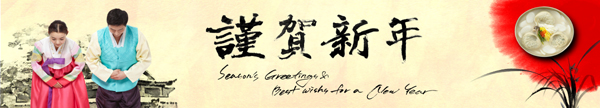 謹賀新年
Season's Greetings &
Best wishes for a New Year